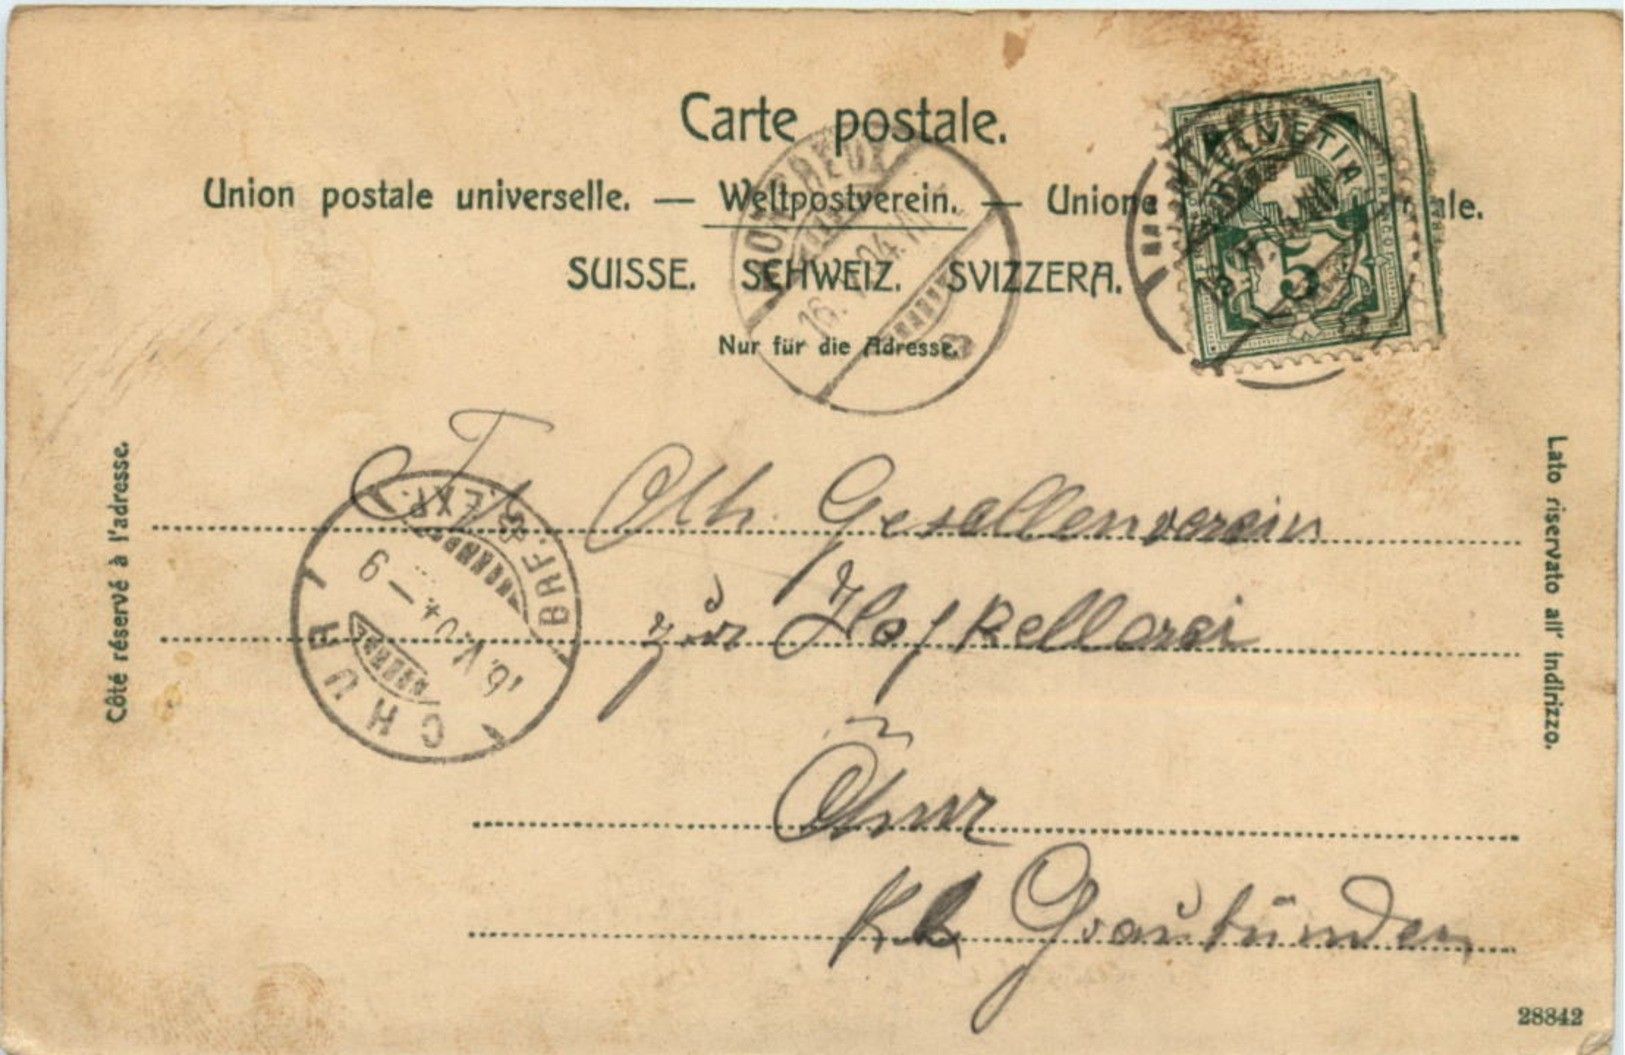 Carte postale.
Union postale universelle. — Weltpostverein. — Unione le.
SUISSE. SCHWEIZ. SVIZZERA.
Nur für die Adresse.
HELVETIA
FRANCO
5
MONTREUX
16. V. 04.
CHUR 1
BRF. EXP.
16. V. 04. — 9
Côté réservé à l'adresse.
Lato riservato all' indirizzo.
Gesellenverein
zur Hofkellerei
Chur
Graubünden
28842